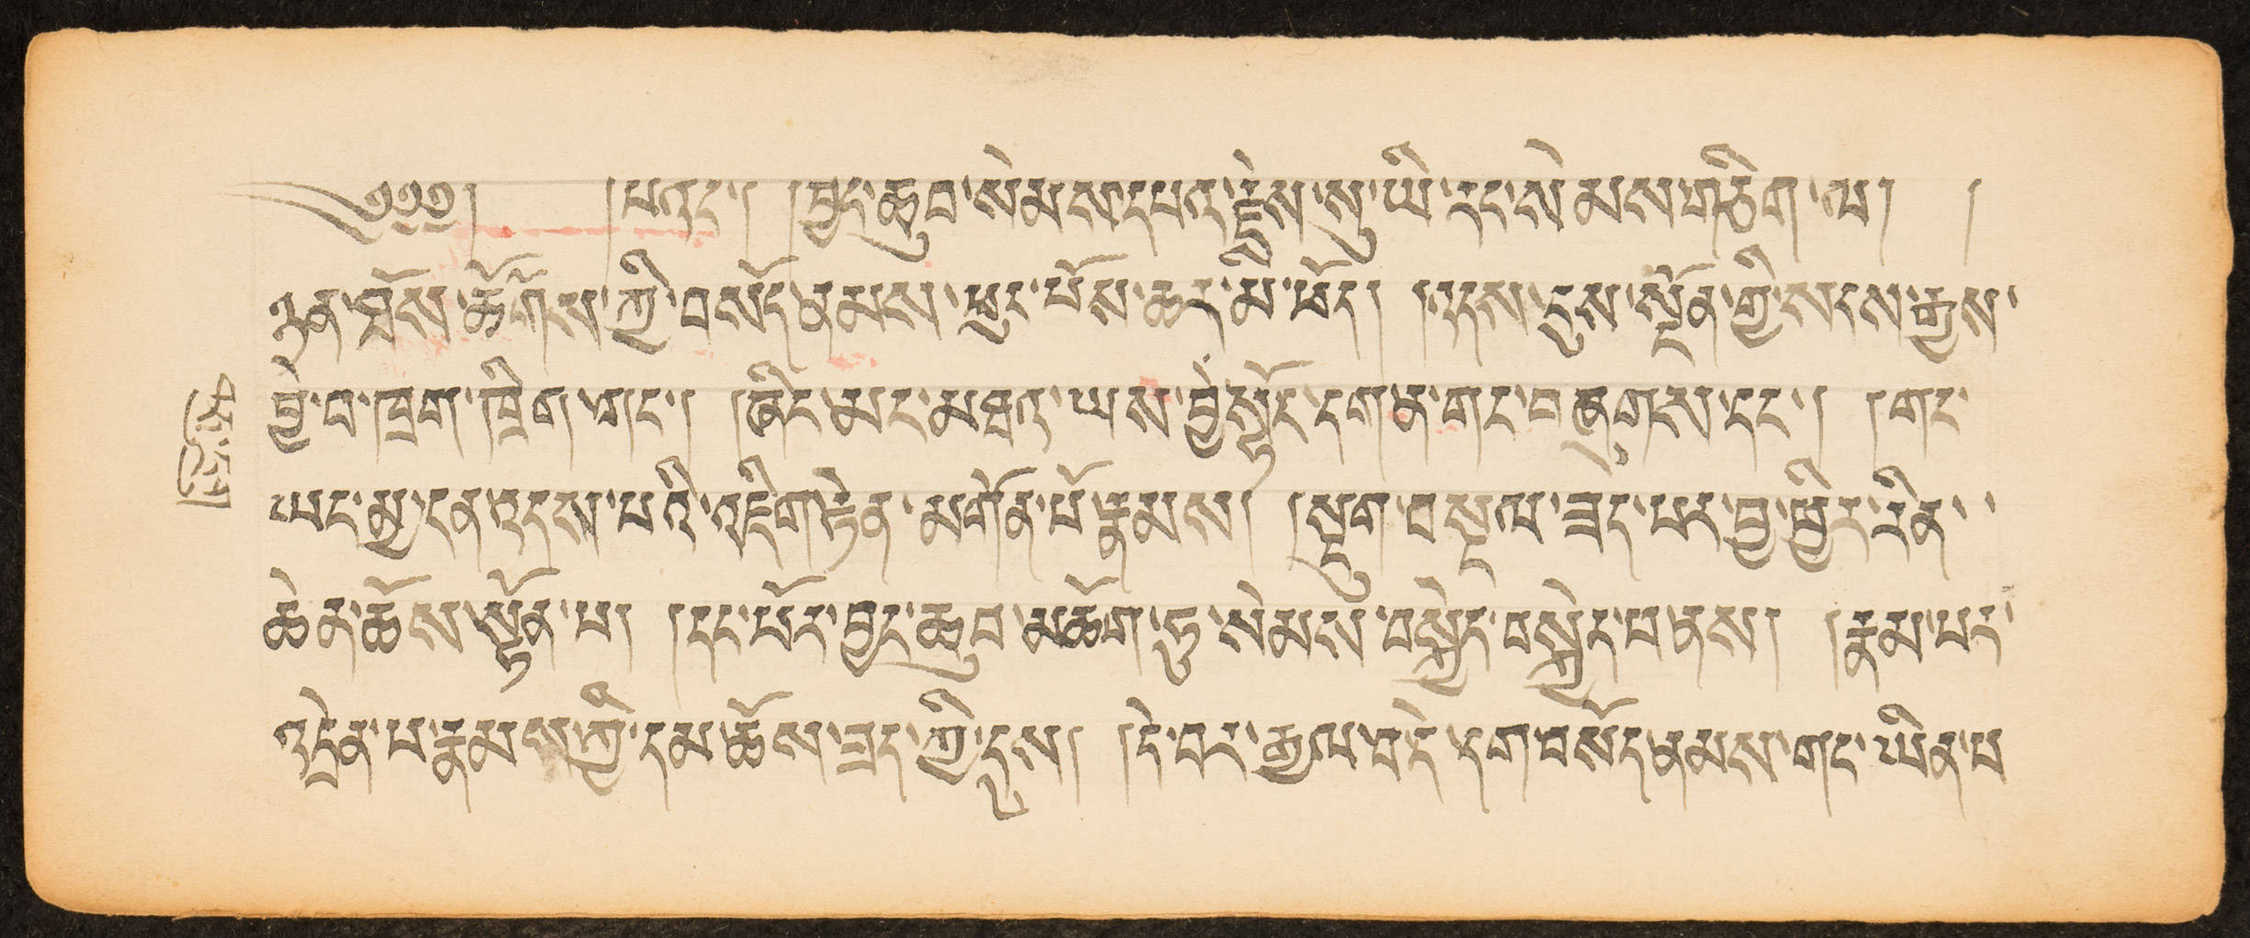 ༄༅༅། །པའང་། །བྱང་ཆུབ་སེམས་དཔའ་རྗེས་སུ་ཡི་རང་སེམས་གཅིག་ལ། །
ཉན་ཐོས་ཚོགས་ཀྱི་བསོད་ནམས་ཕུང་པོས་ཆར་མི་ཕོད། །འདས་དུས་སྔོན་གྱི་སངས་རྒྱས་
བྱེ་བ་ཁྲག་ཁྲིག་དང་། །ཞིང་མང་མཐའ་ཡས་བྱེ་སྟོང་དག་ན་གང་བཞུགས་དང་། །གང་
ཡང་མྱ་ངན་འདས་པའི་འཇིག་རྟེན་མགོན་པོ་རྣམས། །སྡུག་བསྔལ་ཟད་པར་བྱ་ཕྱིར་རིན་
ཆེན་ཆོས་སྟོན་པ། །དང་པོར་བྱང་ཆུབ་མཆོག་ཏུ་སེམས་བསྐྱེད་བསྐྱེད་པ་ནས། །རྣམ་པར་
འདྲེན་པ་རྣམས་ཀྱི་དམ་ཆོས་ཟད་ཀྱི་དུས། །དེ་བར་རྒྱལ་བ་དེ་དག་བསོད་ནམས་གང་ཡིན་པ